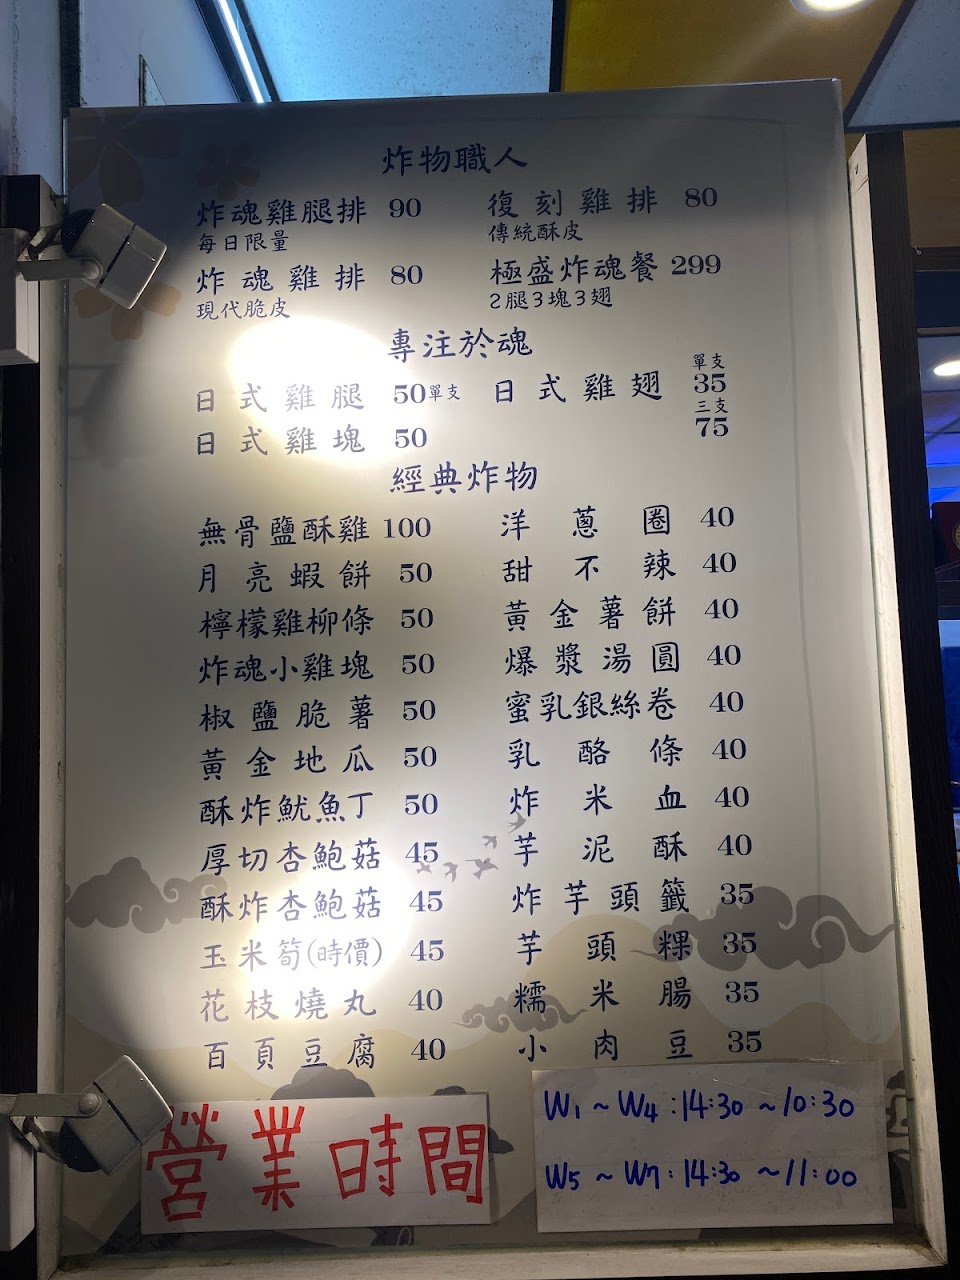 炸物職人
炸魂雞腿排 90
每日限量
復刻雞排 80
傳統酥皮
炸魂雞排 80
現代脆皮
極盛炸魂餐 299
2腿3塊3翅
專注於魂
日式雞腿 50單支
日式雞翅 單支 35
三支 75
日式雞塊 50
經典炸物
無骨鹽酥雞 100
月亮蝦餅 50
檸檬雞柳條 50
炸魂小雞塊 50
椒鹽脆薯 50
黃金地瓜 50
酥炸魷魚丁 50
厚切杏鮑菇 45
酥炸杏鮑菇 45
玉米筍(時價) 45
花枝燒丸 40
百頁豆腐 40
洋蔥圈 40
甜不辣 40
黃金薯餅 40
爆漿湯圓 40
蜜乳銀絲卷 40
乳酪條 40
炸米血 40
芋泥酥 40
炸芋頭籤 35
芋頭粿 35
糯米腸 35
小肉豆 35
營業時間
W1~W4:14:30~10:30
W5~W7:14:30~11:00